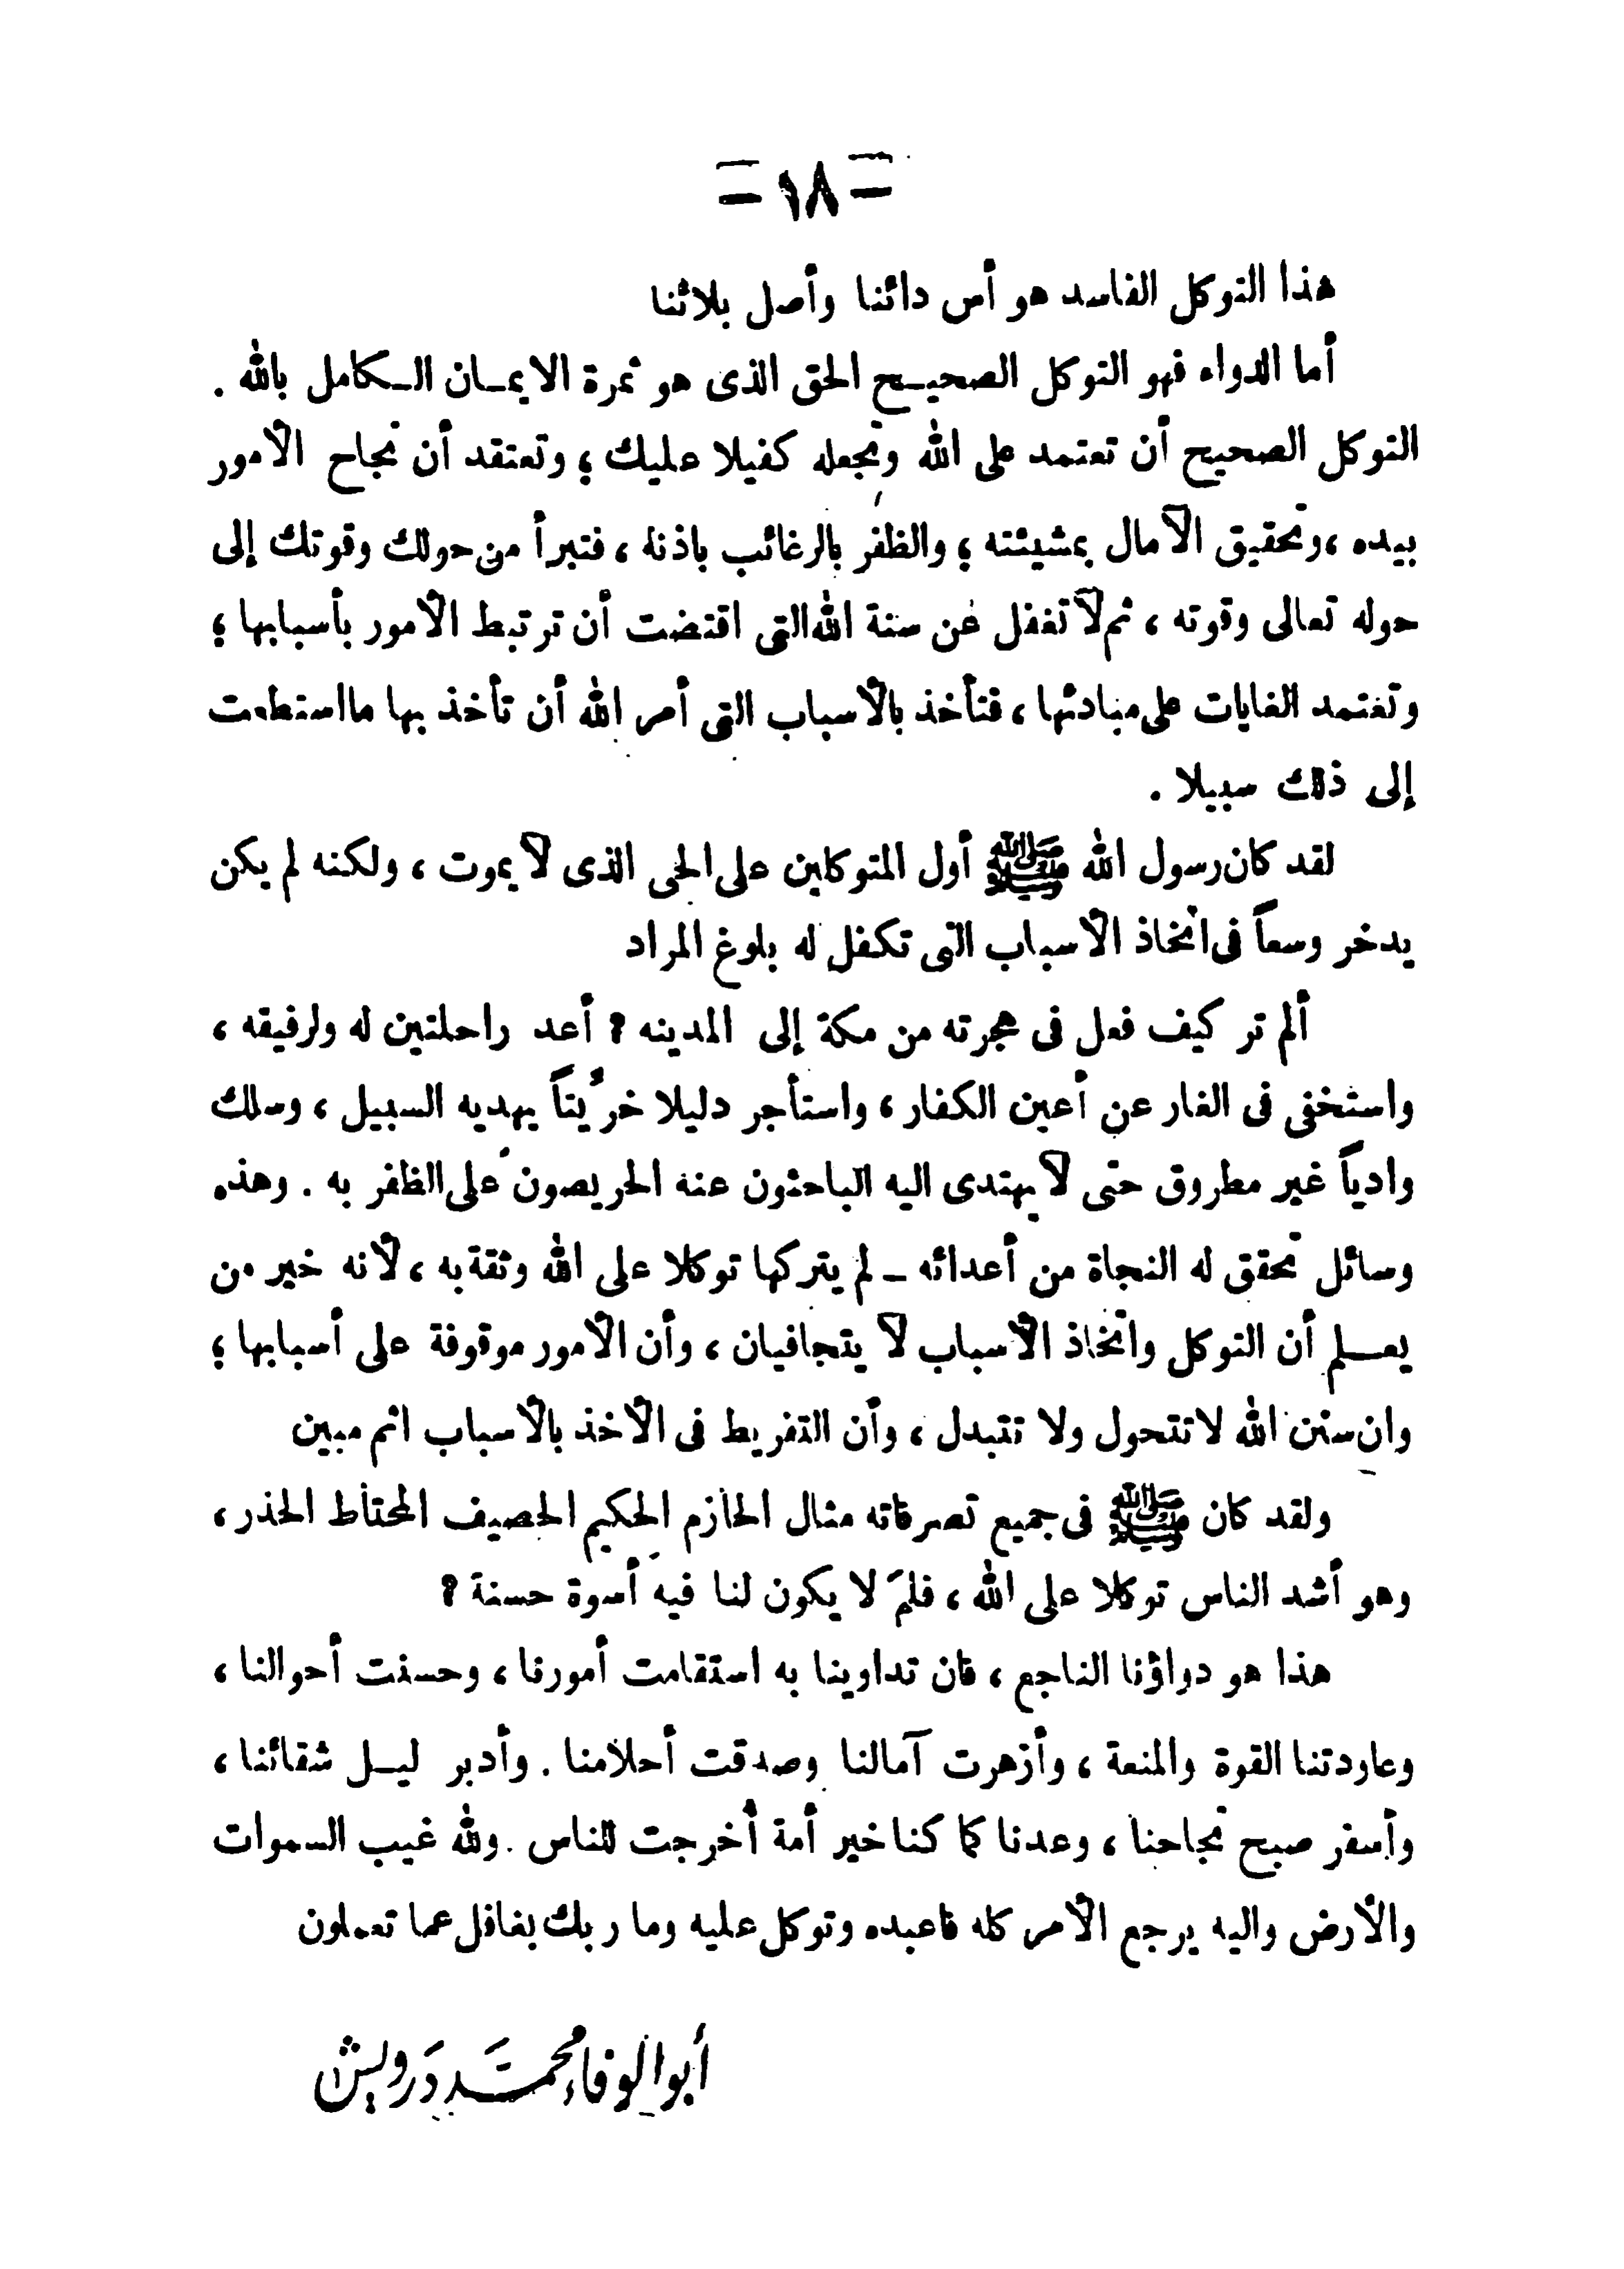 — ١٨ —
هذا التوكل الفاسد هو أس دائنا وأصل بلائنا
أما الدواء فهو التوكل الصحيح الحق الذى هو ثمرة الايمان الكامل بالله .
التوكل الصحيح أن تعتمد على الله وتجعله كفيلا عليك ؛ وتعتقد أن نجاح الأمور
بيده ، وتحقيق الآمال بمشيئته ؛ والظفر بالرغائب باذنه ، فتبرأ من حولك وقوتك إلى
حوله تعالى وقوته ، ثم لا تغفل عن سنة الله التى اقتضت أن ترتبط الأمور بأسبابها ؛
وتعتمد الغايات على مبادئها ، فتأخذ بالأسباب التى أمر الله أن تأخذ بها ما استطعت
إلى ذلك سبيلا .
لقد كان رسول الله ﷺ أول المتوكلين على الحى الذى لا يموت ، ولكنه لم يكن
يدخر وسعاً فى اتخاذ الأسباب التى تكفل له بلوغ المراد
ألم تر كيف فعل فى هجرته من مكة إلى المدينه ؟ أعد راحلتين له ولرفيقه ،
واستخفى فى الغار عن أعين الكفار ، واستأجر دليلا خرُيتاً يهديه السبيل ، وسلك
وادياً غير مطروق حتى لا يهتدى اليه الباحثون عنه الحريصون على الظفر به . وهذه
وسائل تحقق له النجاة من أعدائه ــ لم يتركها توكلا على الله وثقة به ، لأنه خير من
يعلم أن التوكل واتخاذ الأسباب لا يتجافيان ، وأن الأمور موقوفة على أسبابها ؛
وان سنن الله لا تتحول ولا تتبدل ، وأن التفريط فى الأخذ بالأسباب اثم مبين
ولقد كان ﷺ فى جميع تصرفاته مثال الحازم الحكيم الحصيف المحتاط الحذر ،
وهو أشد الناس توكلا على الله ، فلمَ لا يكون لنا فيه أسوة حسنة ؟
هذا هو دواؤنا الناجع ، فان تداوينا به استقامت أمورنا ، وحسنت أحوالنا ،
وعاودتنا القوة والمنعة ، وأزهرت آمالنا وصدقت أحلامنا . وأدبر ليل شقائنا ،
وأسفر صبح نجاحنا ، وعدنا كما كنا خير أمة أُخرجت للناس . ولله غيب السموات
والأرض واليه يرجع الأمر كله فاعبده وتوكل عليه وما ربك بغافل عما تعملون
أبو الوفاء محمَّد دَرويش